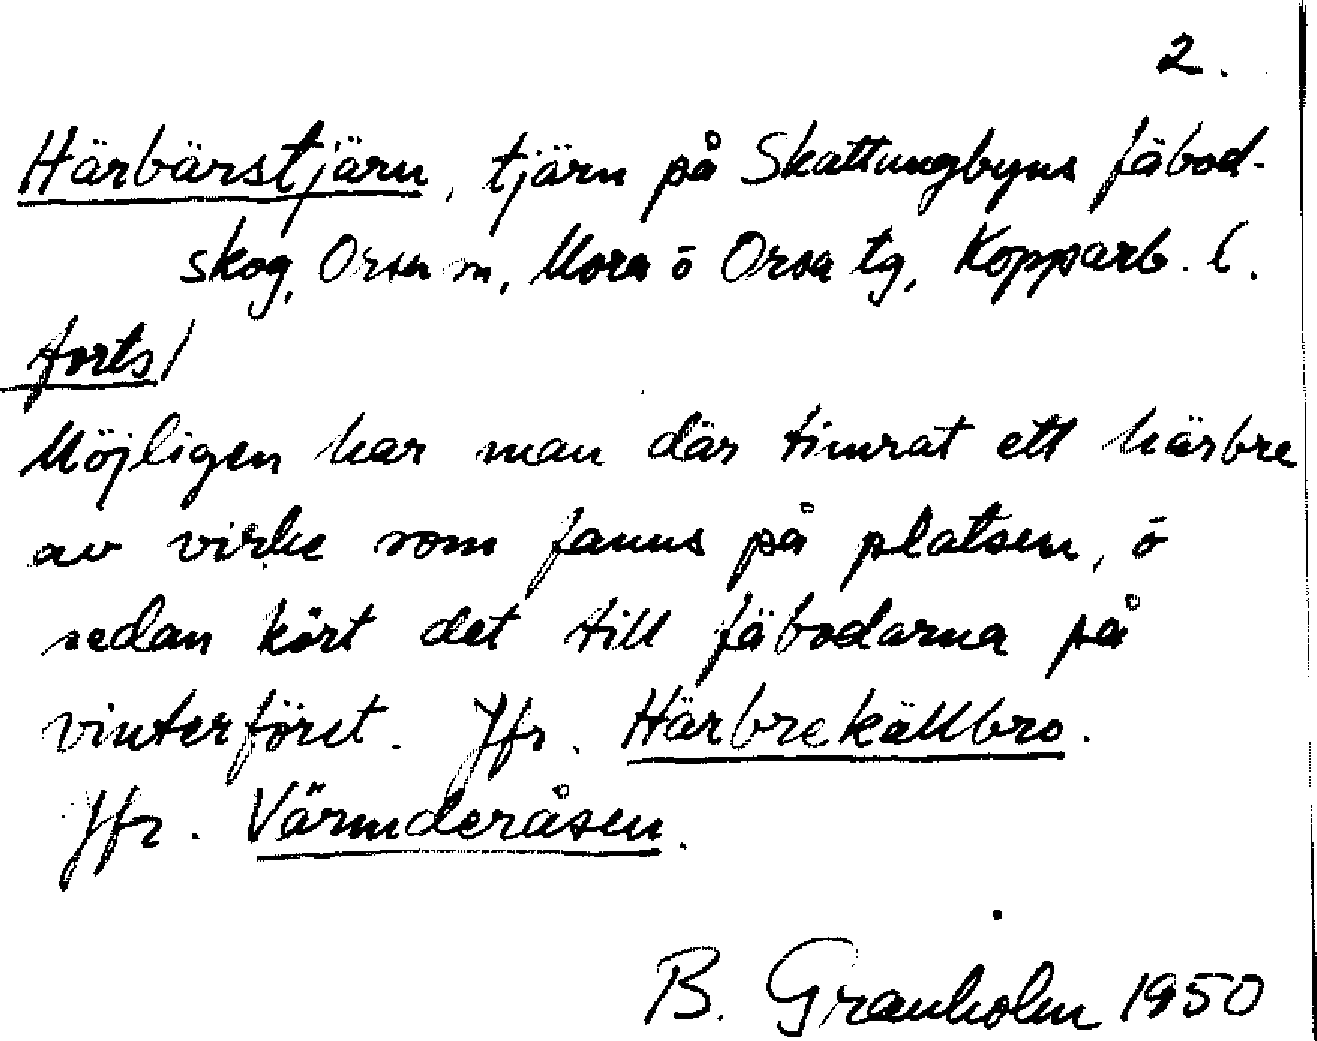 2.
Härbärstjärn, tjärn på Skattungbyns fäbod-
skog, Orsa m, Mora ö Orsa tg, Kopparb. l.
forts/
Möjligen har man där timrat ett härbre
av virke som fanns på platsen, ö
sedan kört det till fäbodarna på
vinterföret. Jfr. Härbrekällbro.
Jfr. Värmderåsen.
B. Granholm 1950